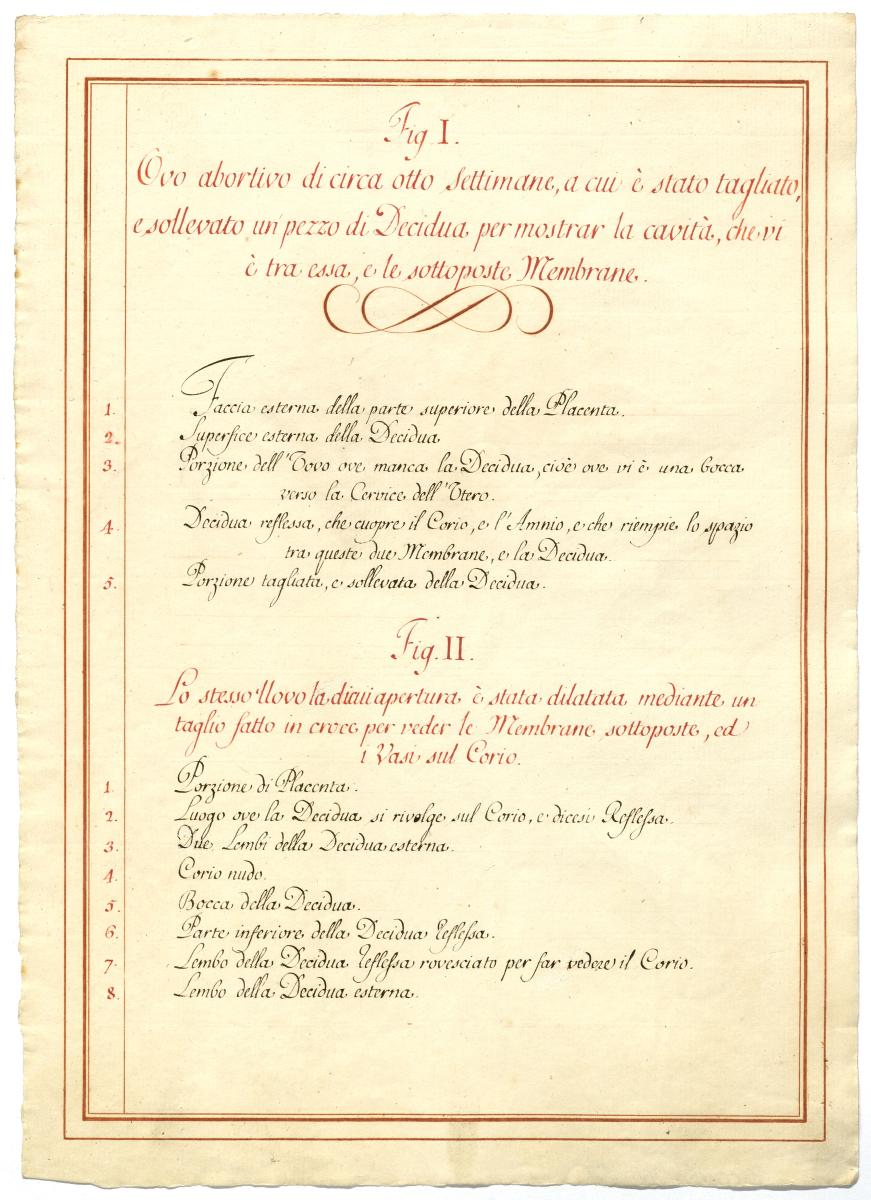 Fig I.
Ovo abortivo di circa otto Settimane, a cui è stato tagliato,
e sollevato un pezzo di Decidua per mostrar la cavità, che vi
è tra essa, e le sottoposte Membrane.
1. Faccia esterna della parte superiore della Placenta.
2. Superfice esterna della Decidua
3. Porzione dell'Vovo ove manca la Decidua, cioè ove vi è una bocca
verso la Cervice dell'Vtero.
4. Decidua reflessa, che cuopre il Corio, e l'Amnio, e che riempie lo spazio
tra queste due Membrane, e la Decidua.
5. Porzione tagliata, e sollevata della Decidua.
Fig. II.
Lo stesso Uovo la di cui apertura è stata dilatata mediante un
taglio fatto in croce per veder le Membrane sottoposte, ed
i Vasi sul Corio.
1. Porzione di Placenta.
2. Luogo ove la Decidua si rivolge sul Corio, e dicesi Reflessa.
3. Due Lembi della Decidua esterna.
4. Corio nudo.
5. Bocca della Decidua.
6. Parte inferiore della Decidua Reflessa.
7. Lembo della Decidua Reflessa rovesciato per far vedere il Corio.
8. Lembo della Decidua esterna.